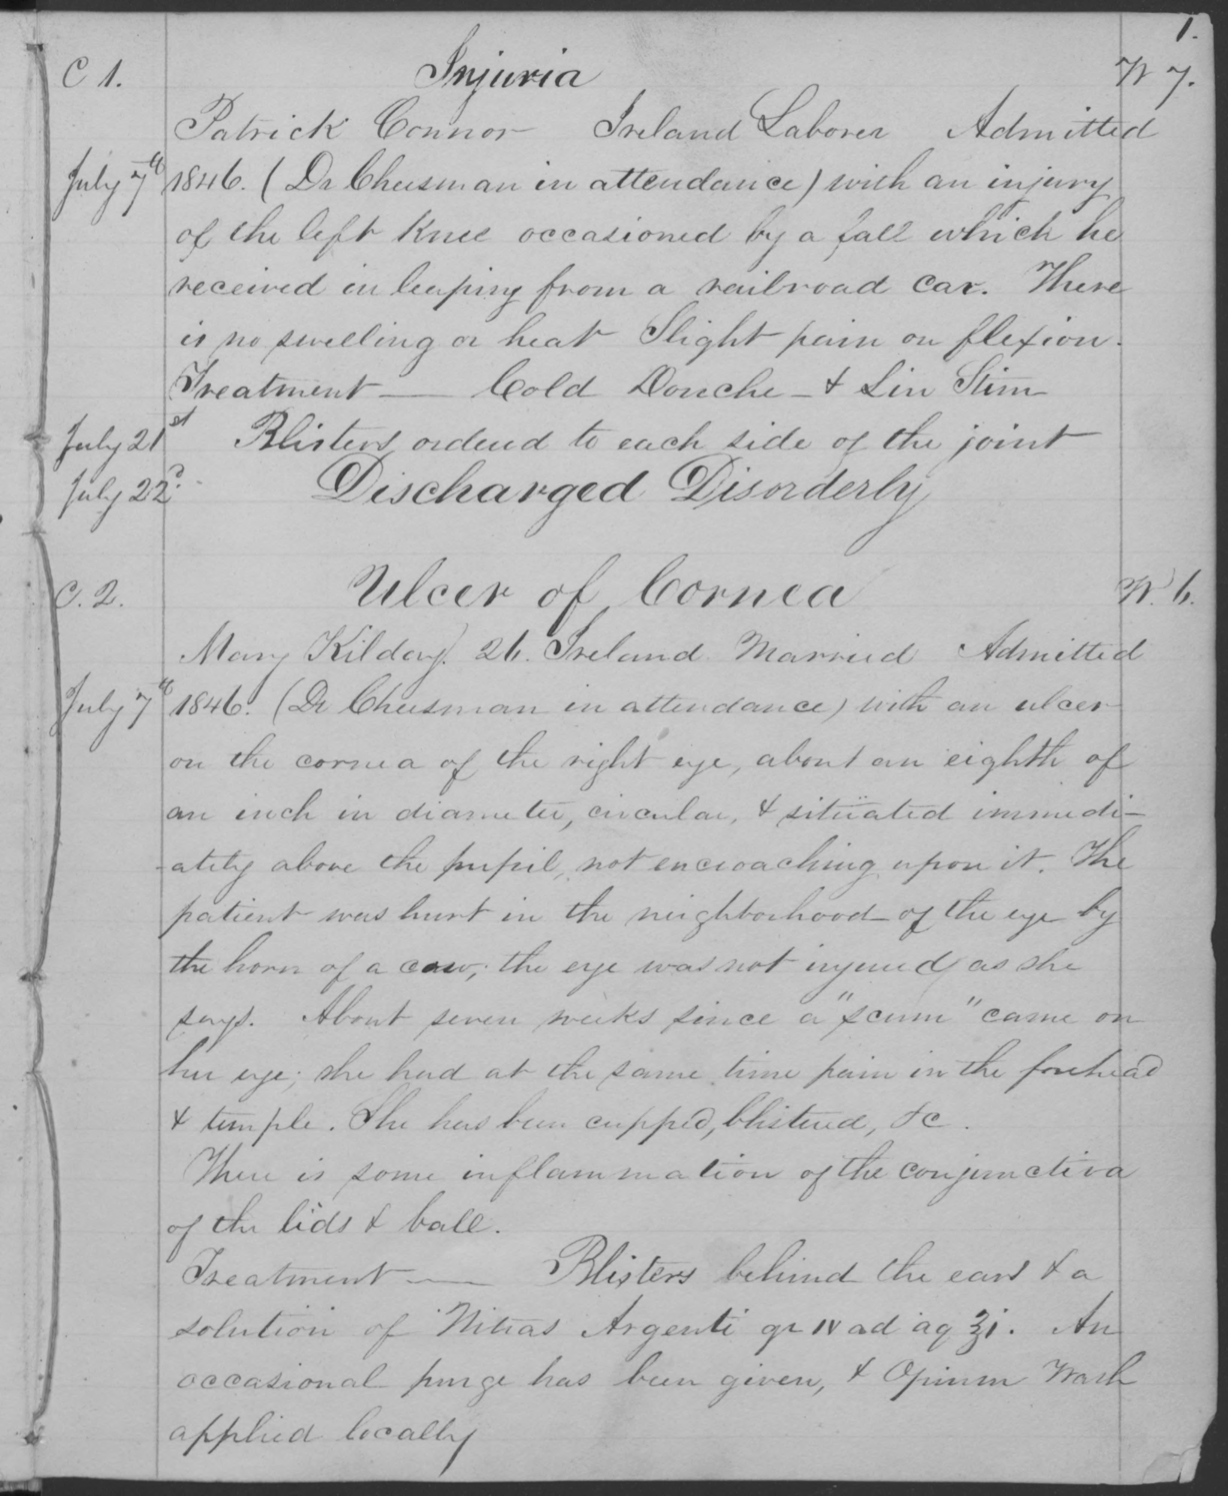 1.
C 1. Injuria W 7.
Patrick Connor Ireland Laborer Admitted
July 7th 1846. (Dr Cheesman in attendance) with an injury
of the left Knee occasioned by a fall which he
received in leaping from a railroad car. There
is no swelling or heat Slight pain on flexion.
Treatment — Cold Douche – & Lin Stim
July 21st Blisters ordered to each side of the joint
July 22d. Discharged Disorderly
C. 2. Ulcer of Cornea W. 6.
Mary Kilday. 26. Ireland Married Admitted
July 7th 1846. (Dr Cheesman in attendance) with an ulcer
on the cornea of the right eye, about an eighth of
an inch in diameter, circular, & sitüated immedi-
-ately above the pupil, not encroaching upon it. The
patient was hurt in the neighborhood of the eye by
the horn of a cow; the eye was not injured, as she
says. About seven weeks since a "scum" came on
her eye; she had at the same time pain in the forehead
& temple. She has been cupped, blistered, &c.
There is some inflammation of the conjunctiva
of the lids & ball.
Treatment — Blisters behind the ears & a
solution of Nitras Argenti gr IV ad aq ʒi. An
occasional purge has been given, & Opium Wash
applied locally